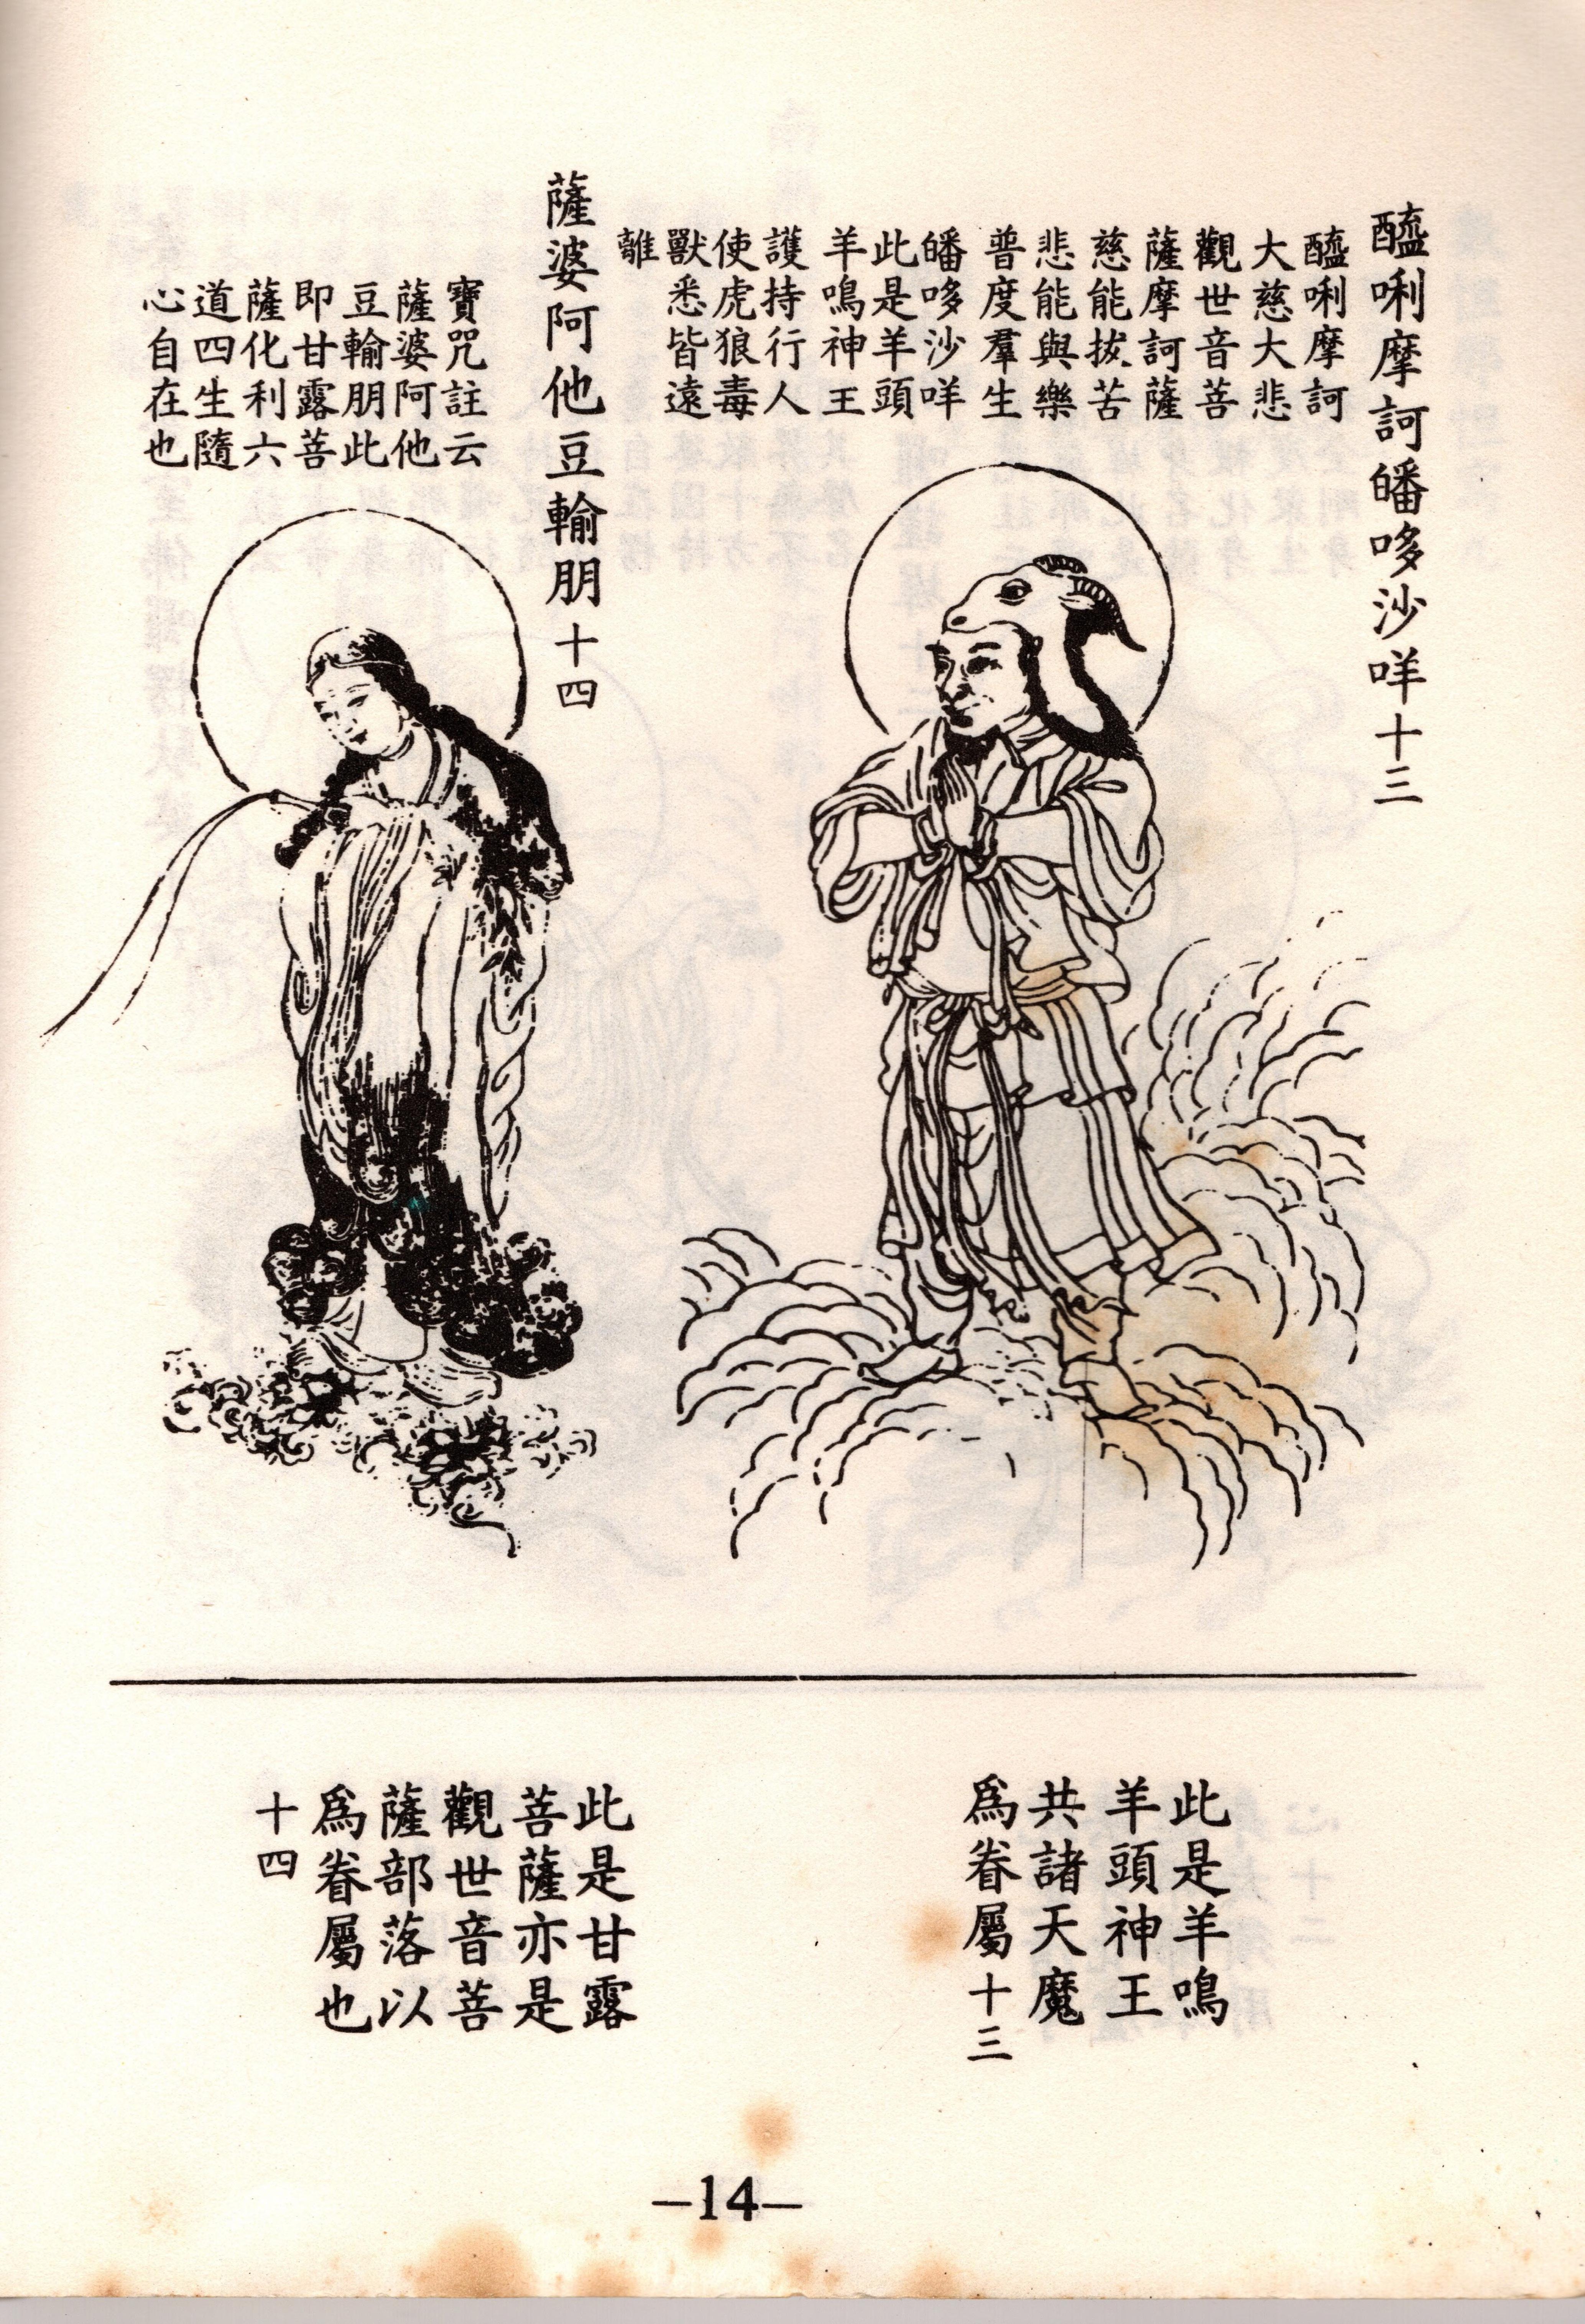 醯唎摩訶皤哆沙咩十三
醯唎摩訶
大慈大悲
觀世音菩
薩摩訶薩
慈能拔苦
悲能與樂
普度羣生
皤哆沙咩
此是羊頭
羊鳴神王
護持行人
使虎狼毒
獸悉皆遠
離
薩婆阿他豆輸朋十四
寶咒註云
薩婆阿他
豆輸朋此
即甘露菩
薩化利六
道四生隨
心自在也
此是羊鳴
羊頭神王
共諸天魔
爲眷屬十三
此是甘露
菩薩亦是
觀世音菩
薩部落以
爲眷屬也
十四
—14—